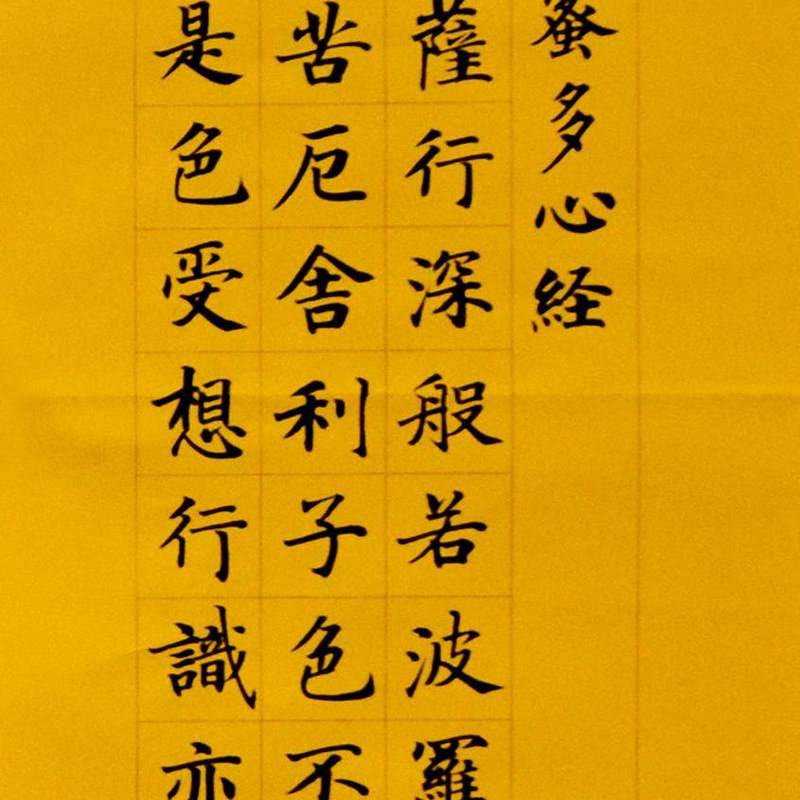 蜜多心経
薩行深般若波羅
苦厄舎利子色不
是色受想行識亦